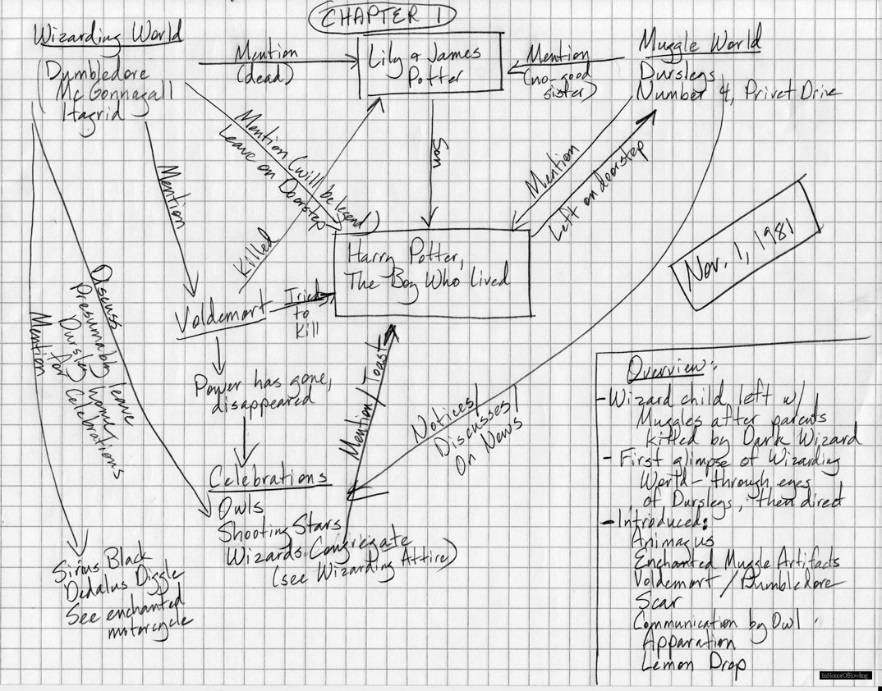 CHAPTER 1
Wizarding World
Dumbledore
McGonnagall
Hagrid
Mention
(dead)
Lily & James
Potter
Mention
(no-good
sister)
Muggle World
Dursleys
Number 4, Privet Drive
Mention (will be legend)
Leave on Doorstep
Mention
Killed
Son
Mention
Left on doorstep
Nov. 1, 1981
Harry Potter,
The Boy Who Lived
Voldemort
Tried
to
Kill
Mention
Discuss
Presumably leave
Dursley home
for Celebrations
Power has gone,
disappeared
Mention/Toast
Notices/
Discusses/
On News
Celebrations
Owls
Shooting Stars
Wizards Congregate
(see Wizarding Attire)
Sirius Black
Dedalus Diggle
See enchanted
motorcycle
Overview:
- Wizard child left w/
Muggles after parents
killed by Dark Wizard
- First glimpse of Wizarding
World - through eyes
of Dursleys, then direct
- Introduced:
Animagus
Enchanted Muggle Artifacts
Voldemort / Dumbledore
Scar
Communication by Owl
Apparation
Lemon Drop